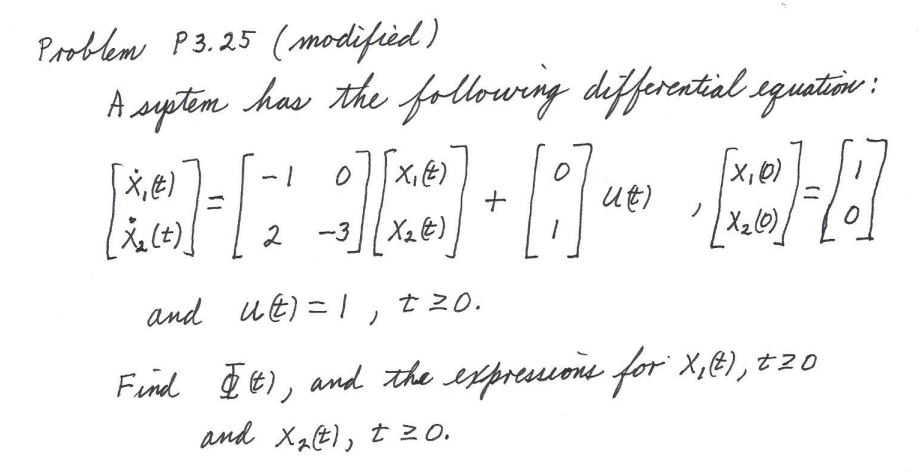 Problem P3.25 (modified)
A system has the following differential equation:
[ẋ₁(t) ; ẋ₂(t)] = [-1 0 ; 2 -3] [x₁(t) ; x₂(t)] + [0 ; 1] u(t) , [x₁(0) ; x₂(0)] = [1 ; 0]
and u(t) = 1 , t ≥ 0.
Find Φ(t), and the expressions for x₁(t), t ≥ 0
and x₂(t), t ≥ 0.